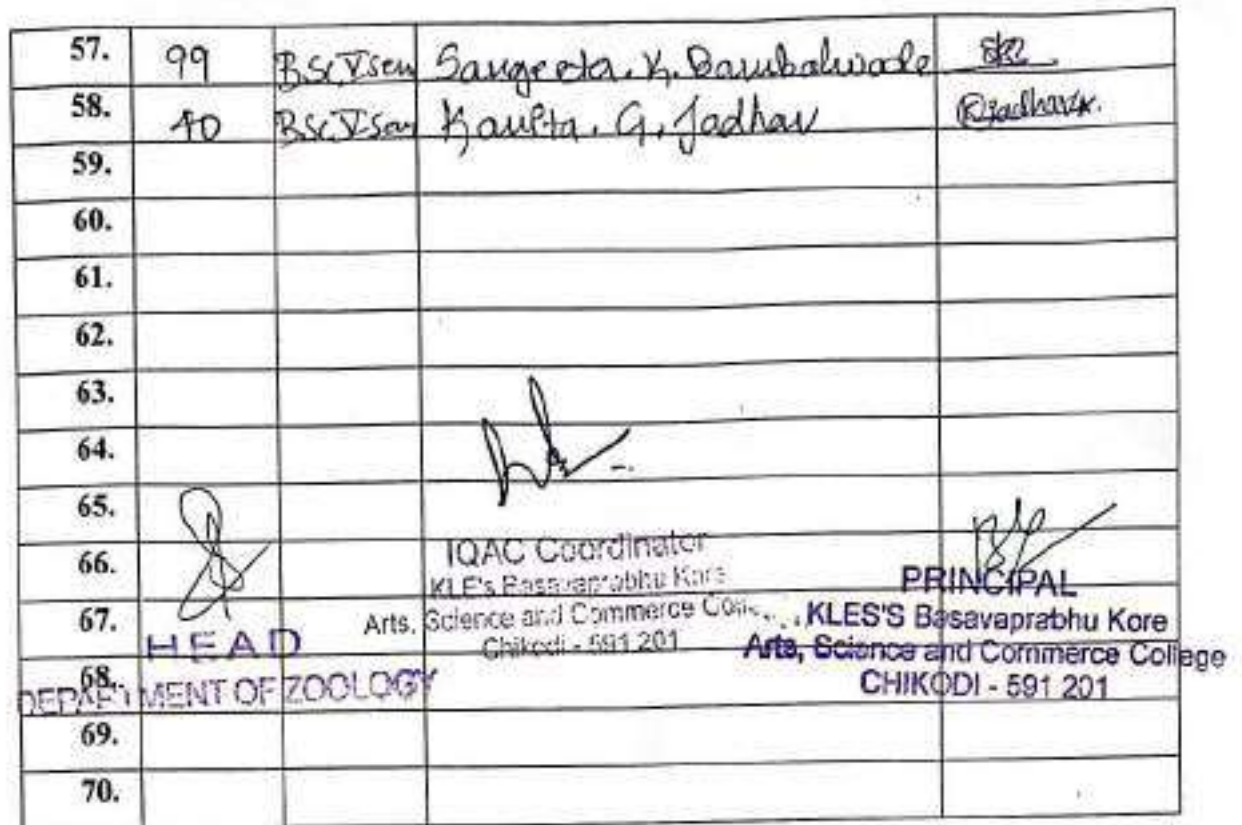 57. 99 BSc V sem Sangeeta. K. Bambalwade
58. 40 BSc V Sem G. Jadhav Kjadhav
59.
60.
61.
62.
63.
64.
65.
66.
67.
68.
69.
70.
HEAD
DEPARTMENT OF ZOOLOGY
IQAC Coordinator
KLE's Basavaprabhu Kore
Arts, Science and Commerce College
Chikodi - 591 201
PRINCIPAL
KLES'S Basavaprabhu Kore
Arts, Science and Commerce College
CHIKODI - 591 201